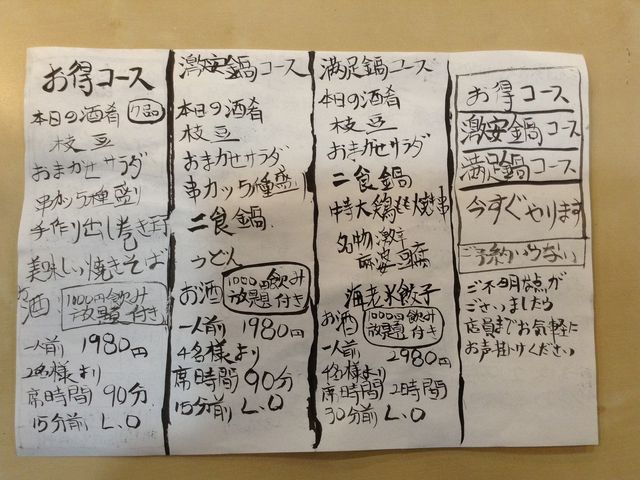 お得コース
本日の酒肴 り品
枝豆
おまかせサラダ
串カツ5種盛り
手作り出し巻き玉子
美味しい焼きそば
お酒 1000円飲み放題付き
一人前 1980円
2名様より
席時間 90分
15分前 L.O
激安鍋コース
本日の酒肴
枝豆
おまかせサラダ
串カツ5種盛り
二食鍋
うどん
お酒 1000円飲み放題付き
一人前 1980円
4名様より
席時間 90分
15分前 L.O
満足鍋コース
本日の酒肴
枝豆
おまかせサラダ
二食鍋
特大鶏もも焼串
名物激辛
麻婆豆腐
海老米餃子
お酒 1000円飲み放題付き
一人前 2980円
4名様より
席時間 2時間
30分前 L.O
お得コース
激安鍋コース
満足鍋コース
今すぐやります
ご予約いらない
ご不明な点が
ございましたら
店員までお気軽に
お声掛けください